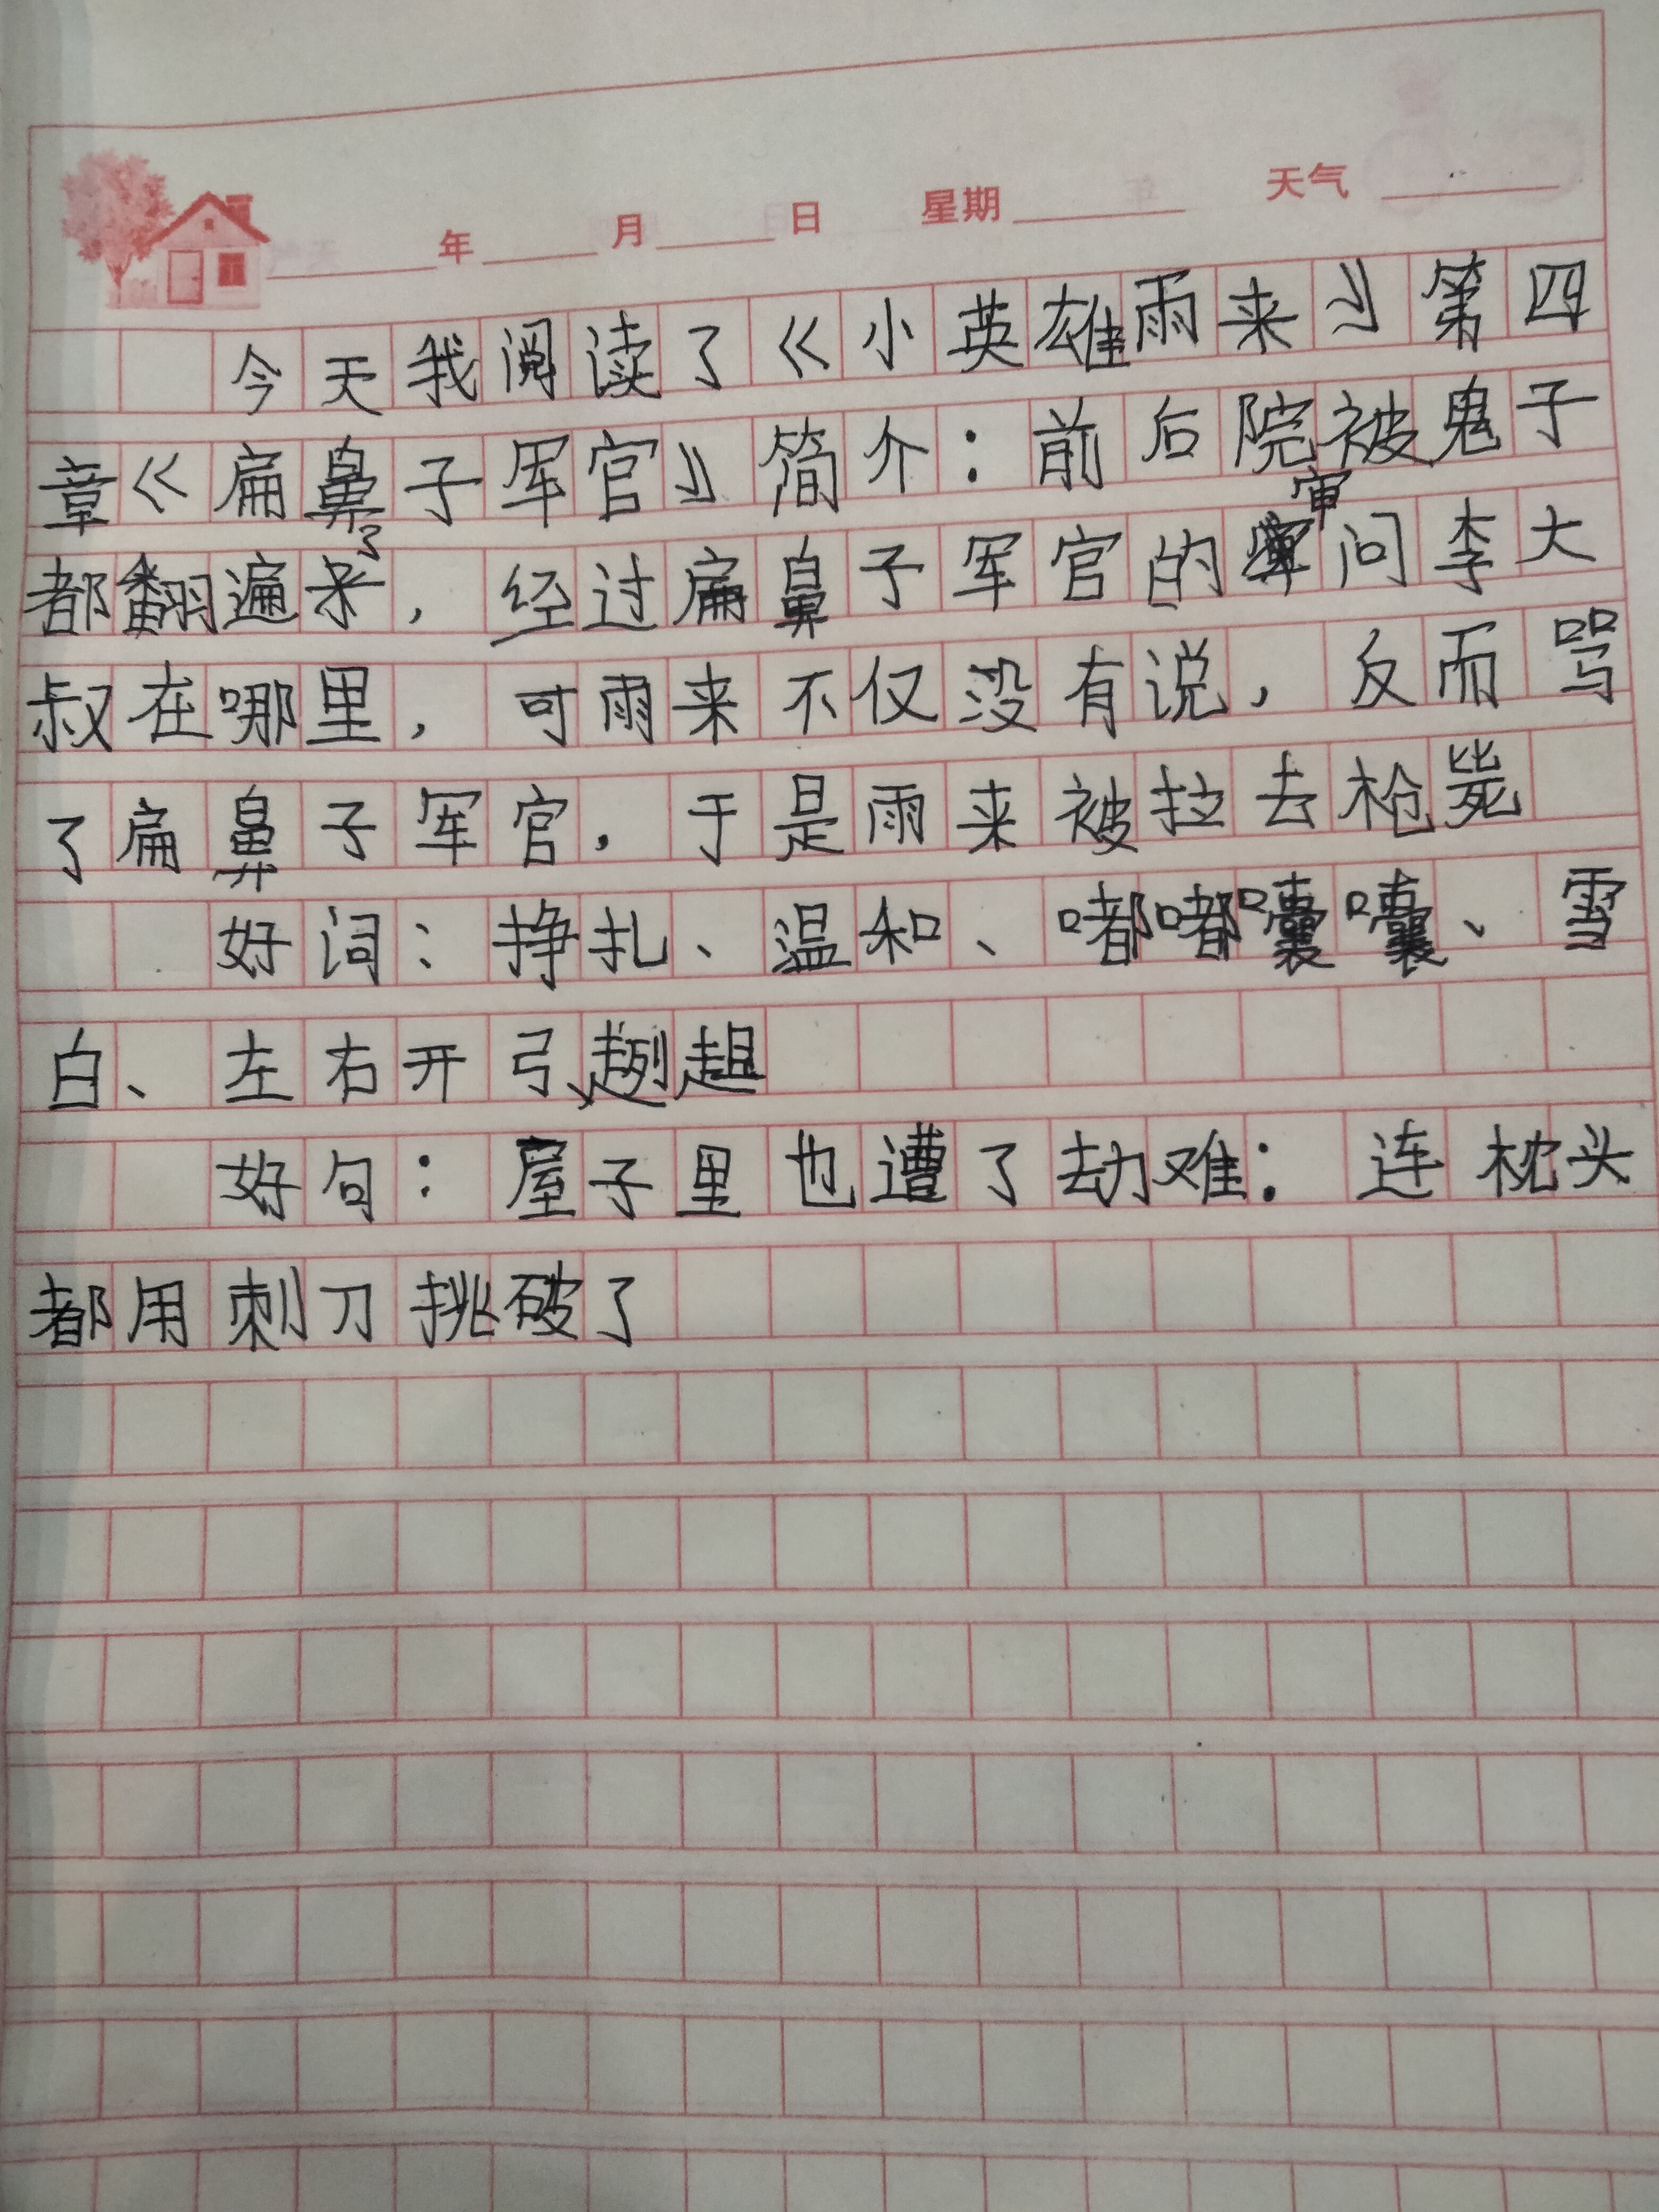 年 月 日 星期 天气
今天我阅读了《小英雄雨来》第四
章《扁鼻子军官》简介：前后院被鬼子
都翻遍了，经过扁鼻子军官的审问李大
叔在哪里，可雨来不仅没有说，反而骂
了扁鼻子军官，于是雨来被拉去枪毙
好词：挣扎、温和、嘟嘟囔囔、雪
白、左右开弓、趔趄
好句：屋子里也遭了劫难：连枕头
都用刺刀挑破了